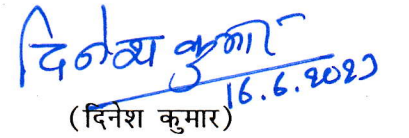 दिनेश कुमार
16.6.2023
(दिनेश कुमार)